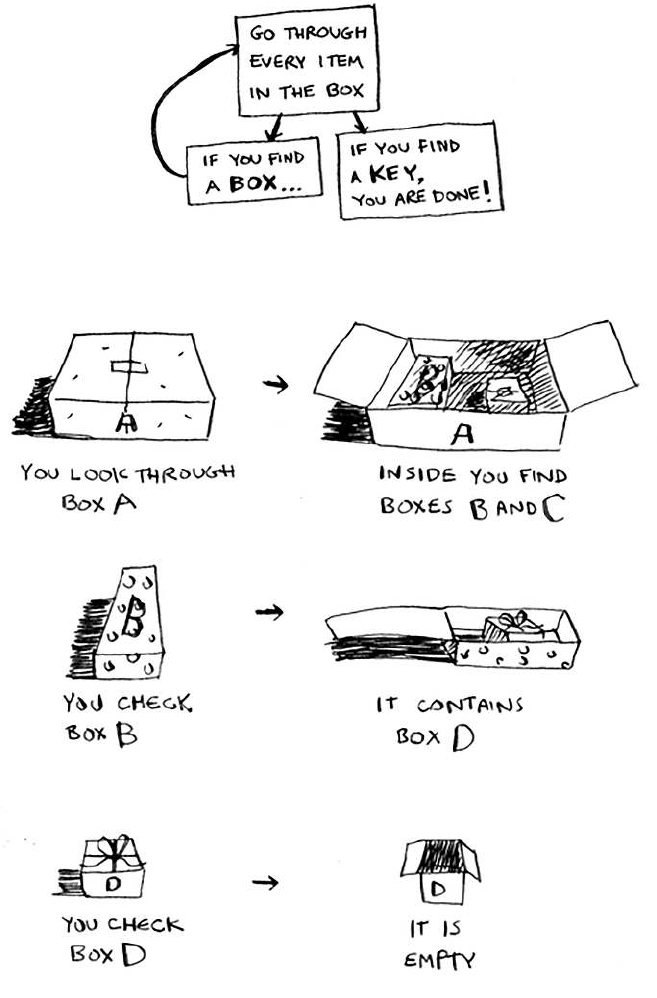 GO THROUGH
EVERY ITEM
IN THE BOX
IF YOU FIND
A BOX...
IF YOU FIND
A KEY,
YOU ARE DONE!
A
A
YOU LOOK THROUGH
BOX A
INSIDE YOU FIND
BOXES B AND C
B
YOU CHECK
BOX B
IT CONTAINS
BOX D
D
D
YOU CHECK
BOX D
IT IS
EMPTY